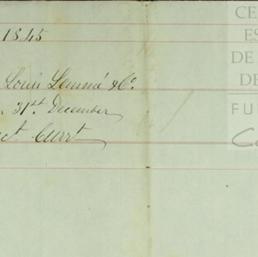 1845
Louis Lemmé & Co.
31st. December
Curt
CE
ES
DE
DE
FU
C